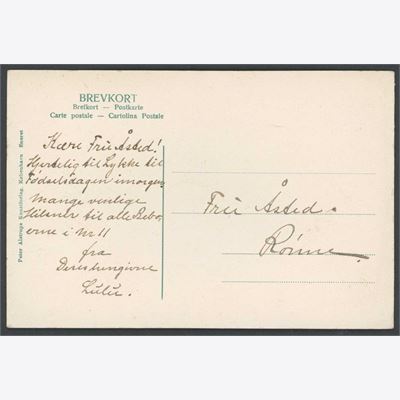 BREVKORT
Brefkort — Postkarte
Carte postale — Cartolina Postale
Peter Alstrups Kunstforlag, København Eneret
Kære Frú Åsted!
Hjertelig til Lykke til
Fødselsdagen imorgen,
mange venlige
Hilsner til alle Bebo-
erne i Nr 11
fra
Deres hengivne
Lulu.
Frú Åsted.
Rønne.